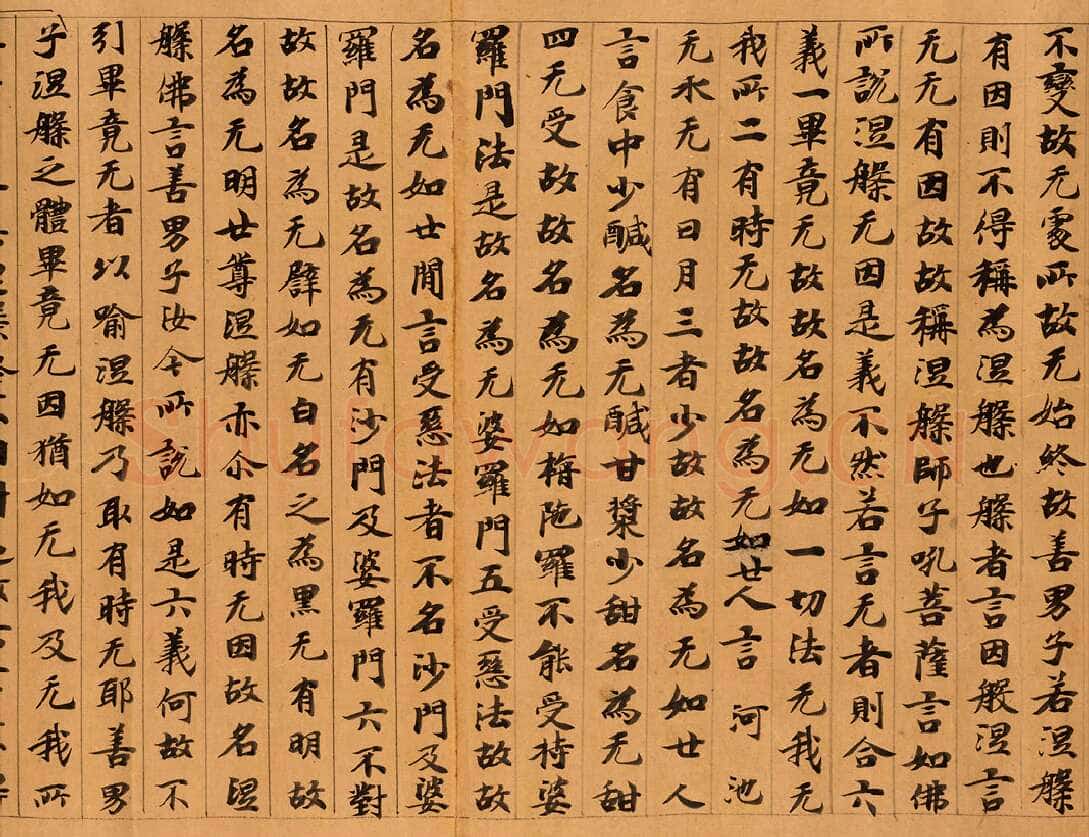 不變故无處所故无始終故善男子若涅槃
有因則不得稱為涅槃也槃者言因般涅言
无无有因故故稱涅槃師子吼菩薩言如佛
所說涅槃无因是義不然若言无者則合六
義一畢竟无故故名為无如一切法无我无
我所二有時无故故名為无如世人言河池
无水无有日月三者少故故名為无如世人
言食中少醎名為无醎甘漿少甜名為无甜
四无受故故名為无如栴陁羅不能受持婆
羅門法是故名為无婆羅門五受惡法故故
名為无如世間言受惡法者不名沙門及婆
羅門是故名為无有沙門及婆羅門六不對
故故名為无辟如无白名之為黑无有明故
名為无明世尊涅槃亦尒有時无因故名涅
槃佛言善男子汝今所說如是六義何故不
引畢竟无者以喻涅槃乃取有時无耶善男
子涅槃之體畢竟无因猶如无我及无我所
Shufawang.CN